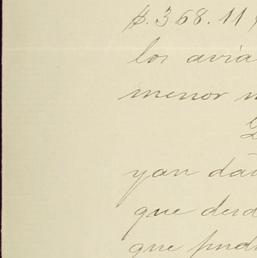 $.368.11
los avia
menor
yan da
que desd
que pud